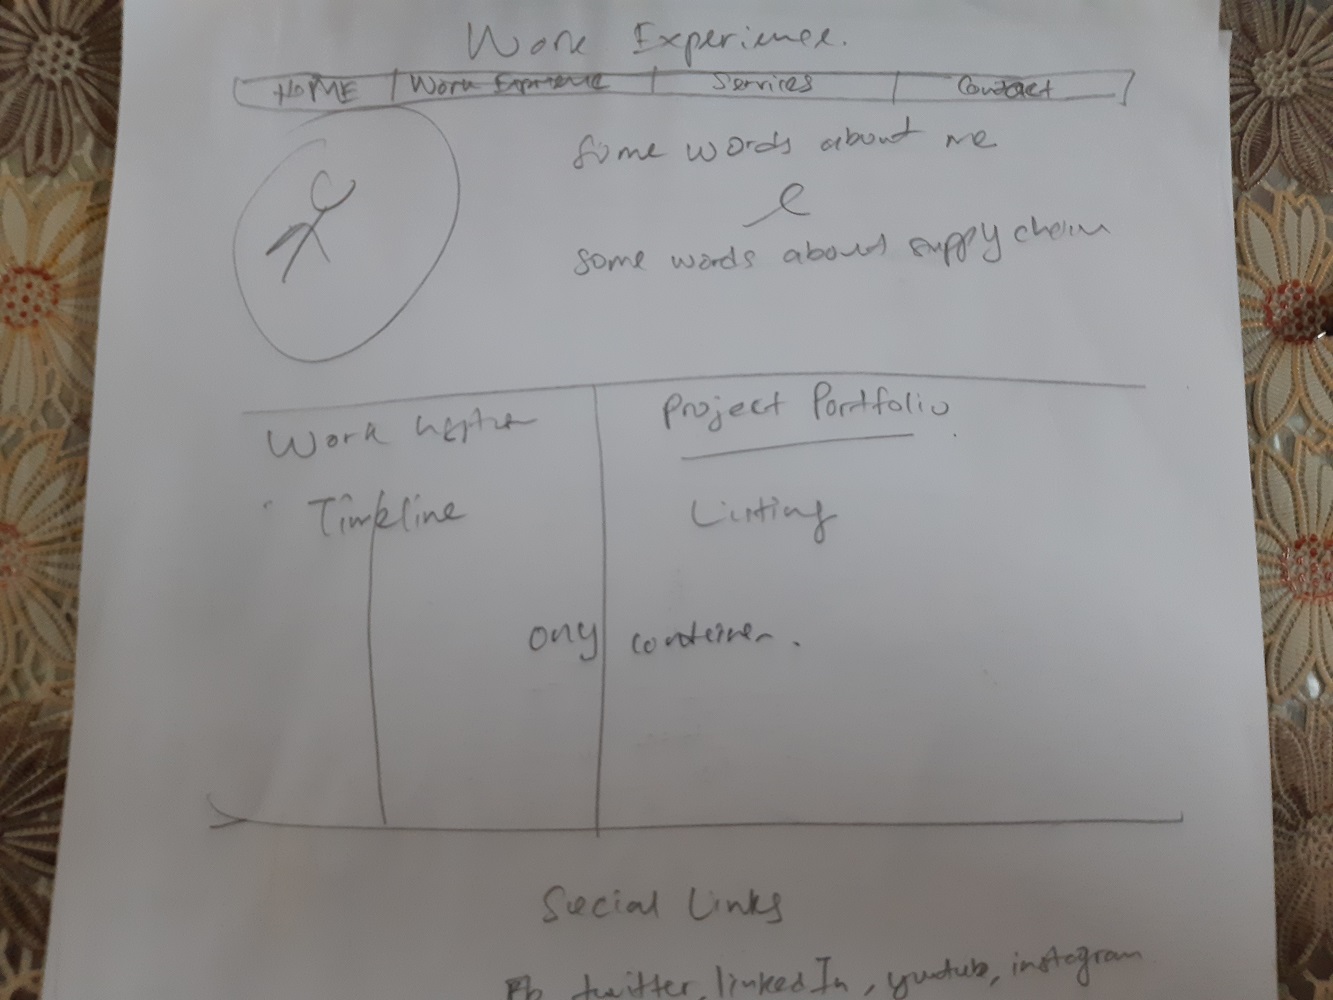 Work Experience.
HOME Work Experience Services Contact
Some words about me
some words about supply chain
Work
Project Portfolio
Timeline
Listing
Social Links
Fb, twitter, linkedIn, youtube, instagram